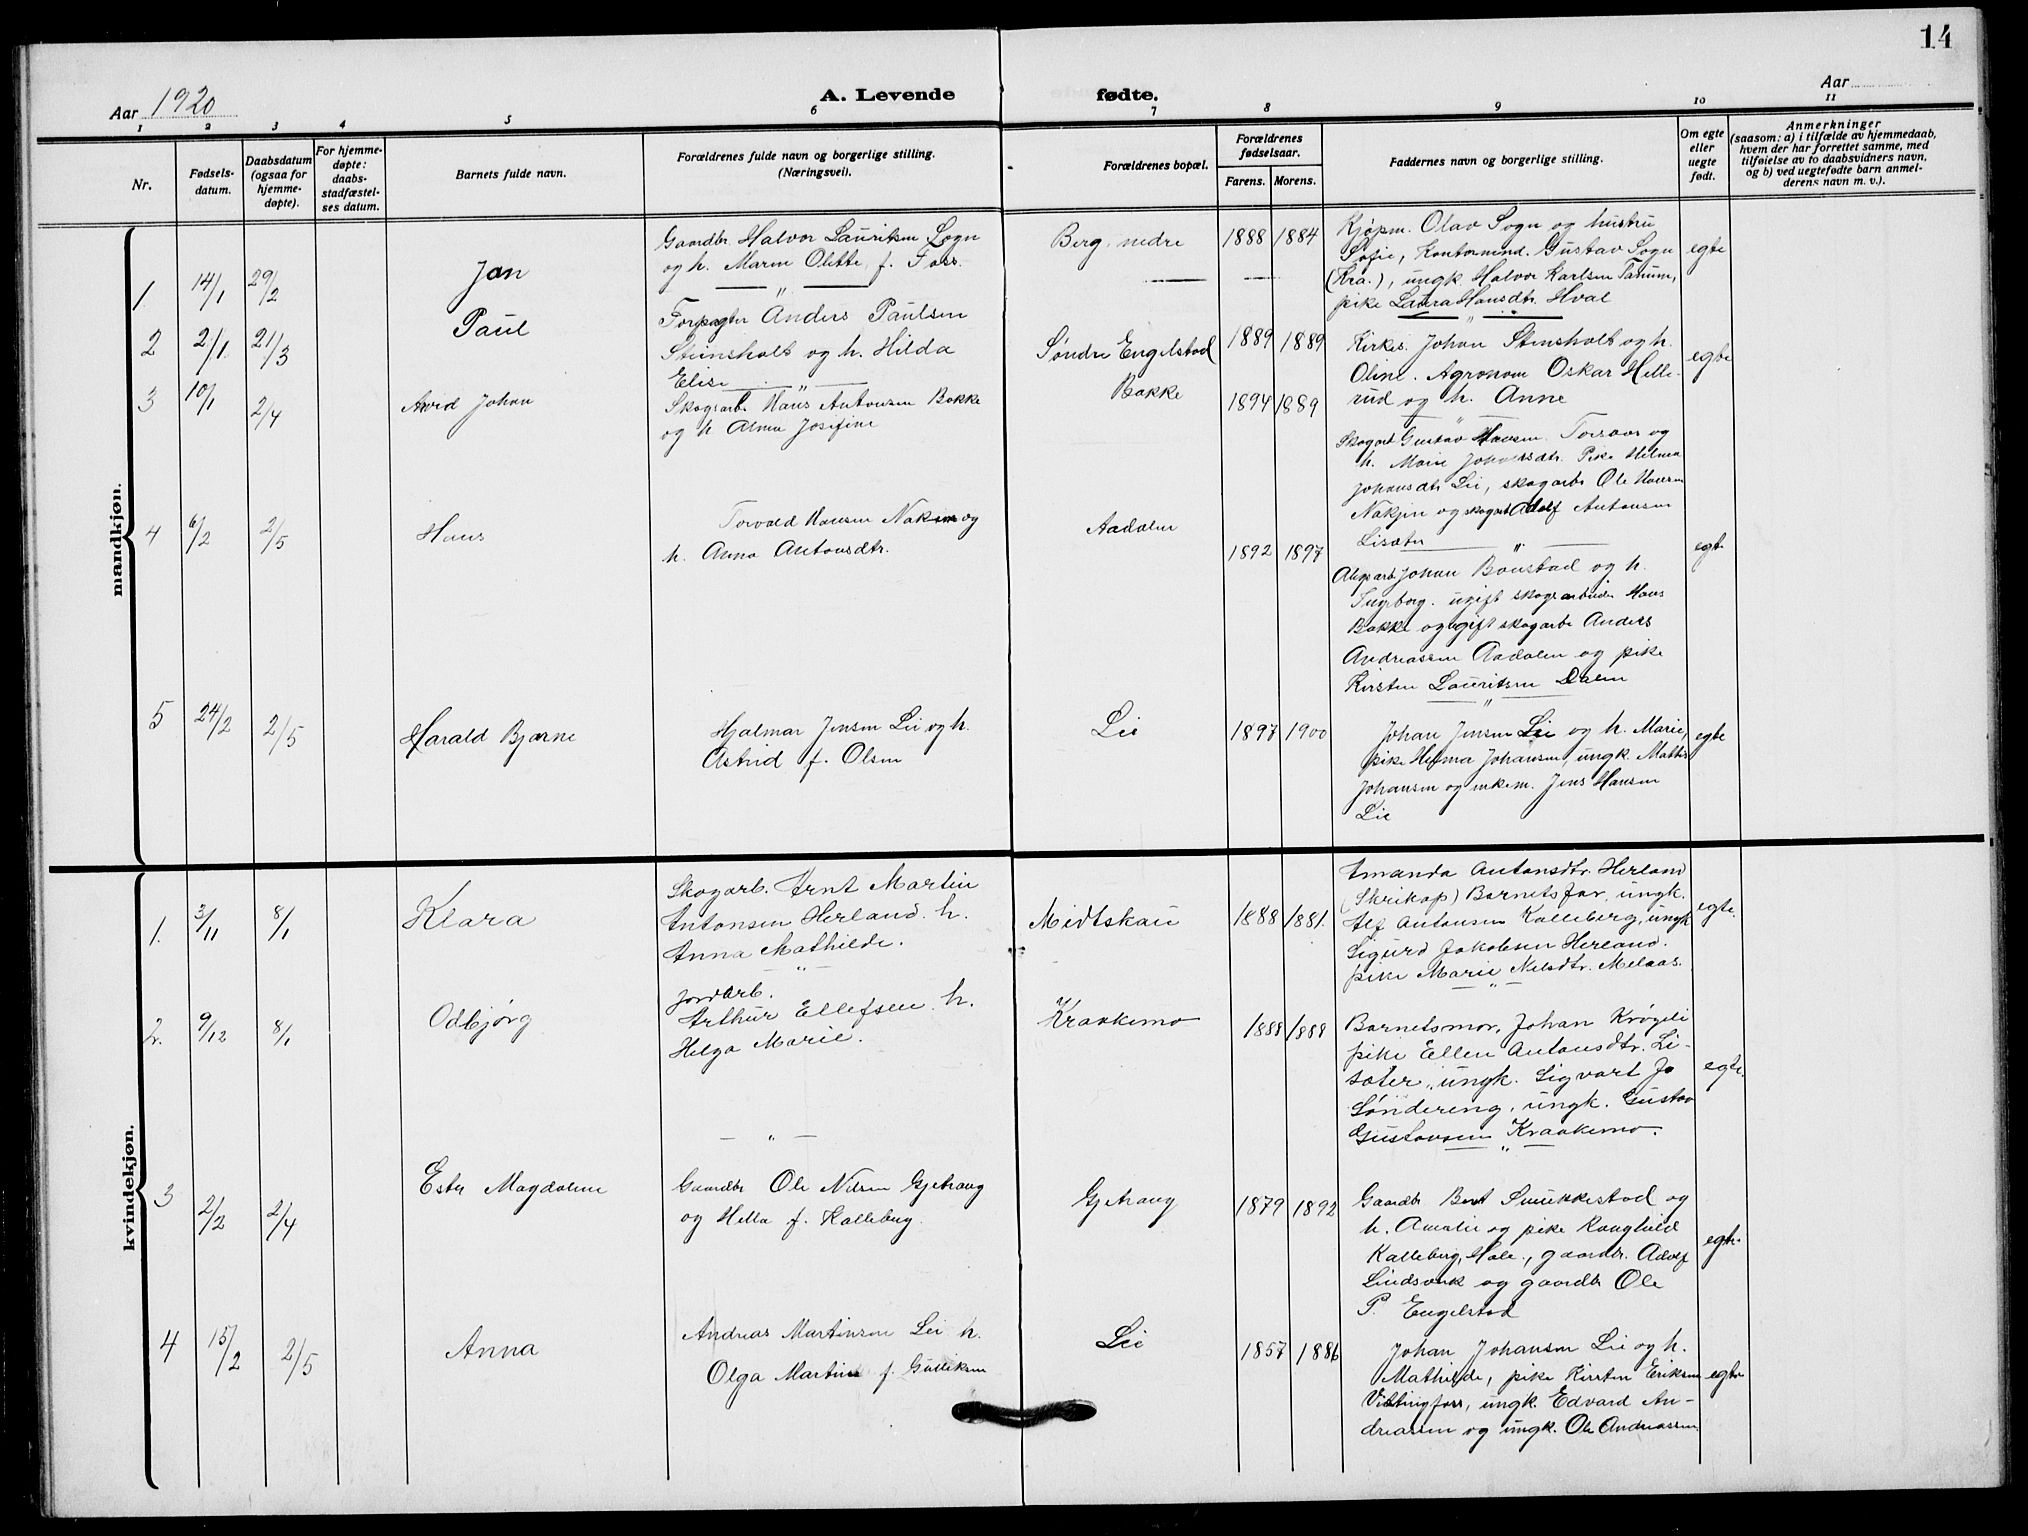 14
Aar 1920
A. Levende fødte.
Aar
1 2 3 4 5 6 7 8 9 10 11
Nr.
Fødsels-
datum.
Daabsdatum
(ogsaa for
hjemme-
døpte).
For hjemme-
døpte:
daabs-
stadfæstel-
ses datum.
Barnets fulde navn.
Forældrenes fulde navn og borgerlige stilling.
(Næringsvei).
Forældrenes bopæl.
Forældrenes
fødselsaar.
Farens. Morens.
Faddernes navn og borgerlige stilling.
Om egte
eller
uegte
født.
Anmerkninger
(saasom: a) i tilfælde av hjemmedaab,
hvem der har forrettet samme, med
tilføielse av to daabsvidners navn,
og b) ved uegtefødte barn anmel-
derens navn m. v.).
mandkjøn.
1. 14/1 29/2
Jan
Gaardbr. Halvor Lauritsen Sogn
og h. Maren Olette f. Foss.
Berg nedre
1888 1884
Kjøpm. Olav Sogn og hustru
Sofie, Kontormand. Gustav Sogn
(Kra.), ungk. Halvor Karlsen Tanum,
pike Laura Hansdtr. Hval
egte
2 2/1 21/3
Paul
Forpagter Anders Paulsen
Stensholt og h. Hilda
Elise
Søndre Engelstad
1889 1889
Kirkes. Johan Stensholt og h.
Oline. Agronom Oskar Helle-
rud og h. Anne
egte
3 10/1 2/4
Arvid Johan
Skogsarb. Hans Antonsen Bakke
og h Alma Josefine
Bakke
1894 1889
Skogarb Gustav Hansen Torsaas og
h. Marie Johansdtr. Pike Helma
Johansdtr Lie, skogarb Ole Hansen
Nakjen og skogarb Adolf Antonsen
Lisæter
4 6/2 2/5
Hans
Torvald Hansen Nakjen og
h. Anna Antonsdtr.
Aadalen
1892 1897
Johan Bonstad og h.
Ingeborg. ugift skogsarbeider Hans
Bakke og gift skogarb Anders
Andreassen Aadalen og pike
Kirsten Lauritsen Dalen
egte
5 24/2 2/5
Harald Bjarne
Hjalmar Jensen Lie og h.
Astrid f. Olsen
Lie
1897 1900
Johan Jensen Lie og h. Marie,
pike Helma Johansen, ungk. Mathis
Johansen og enkem. Jens Hansen
Lie
egte
kvindekjøn.
1. 3/11 8/1
Klara
Skogarb. Arnt Martin
Antonsen Herland. h.
Anna Mathilde.
Midtskau
1888 1881.
Amanda Antonsdtr. Herland
(Skrikop) Barnets far, ungk.
Alf Antonsen Kalleberg, ungk
Sigurd Jakobsen Herland.
pike Marie Nilsdtr. Melaas.
egte.
2. 9/12 8/1
Odbjørg
Jordarb.
Arthur Ellefsen h.
Helga Marie.
Kraakemo
1888 1888
Barnets mor, Johan Krøgeli
pike Ellen Antonsdtr. Li-
sæter, ungk. Sigvart Ja
Søndereng, ungk. Gustav
Gustavsen Kraakemo.
egte.
3 2/2 2/4
Ester Magdalene
Gaardbr Ole Nilsen Gjethaug
og Hella f. Kalleberg.
Gjethaug
1879 1892
Gaardbr Bent Smukkestad og
h. Amalie og pike Raaghild
Kalleberg, Hole., gaardbr. Adolf
Lindsverk og gaardbr Ole
P. Engelstad
egte.
4 15/2 2/5
Anna
Andreas Martinsen Lie h.
Olga Martine f. Gulliksen
Lie
1857 1886
Johan Johansen Lie og h.
Mathilde, pike Kirsten Eriksen
Vittingfoss, ungk. Edvard An-
dreassen og ungk. Ole Andreassen
egte